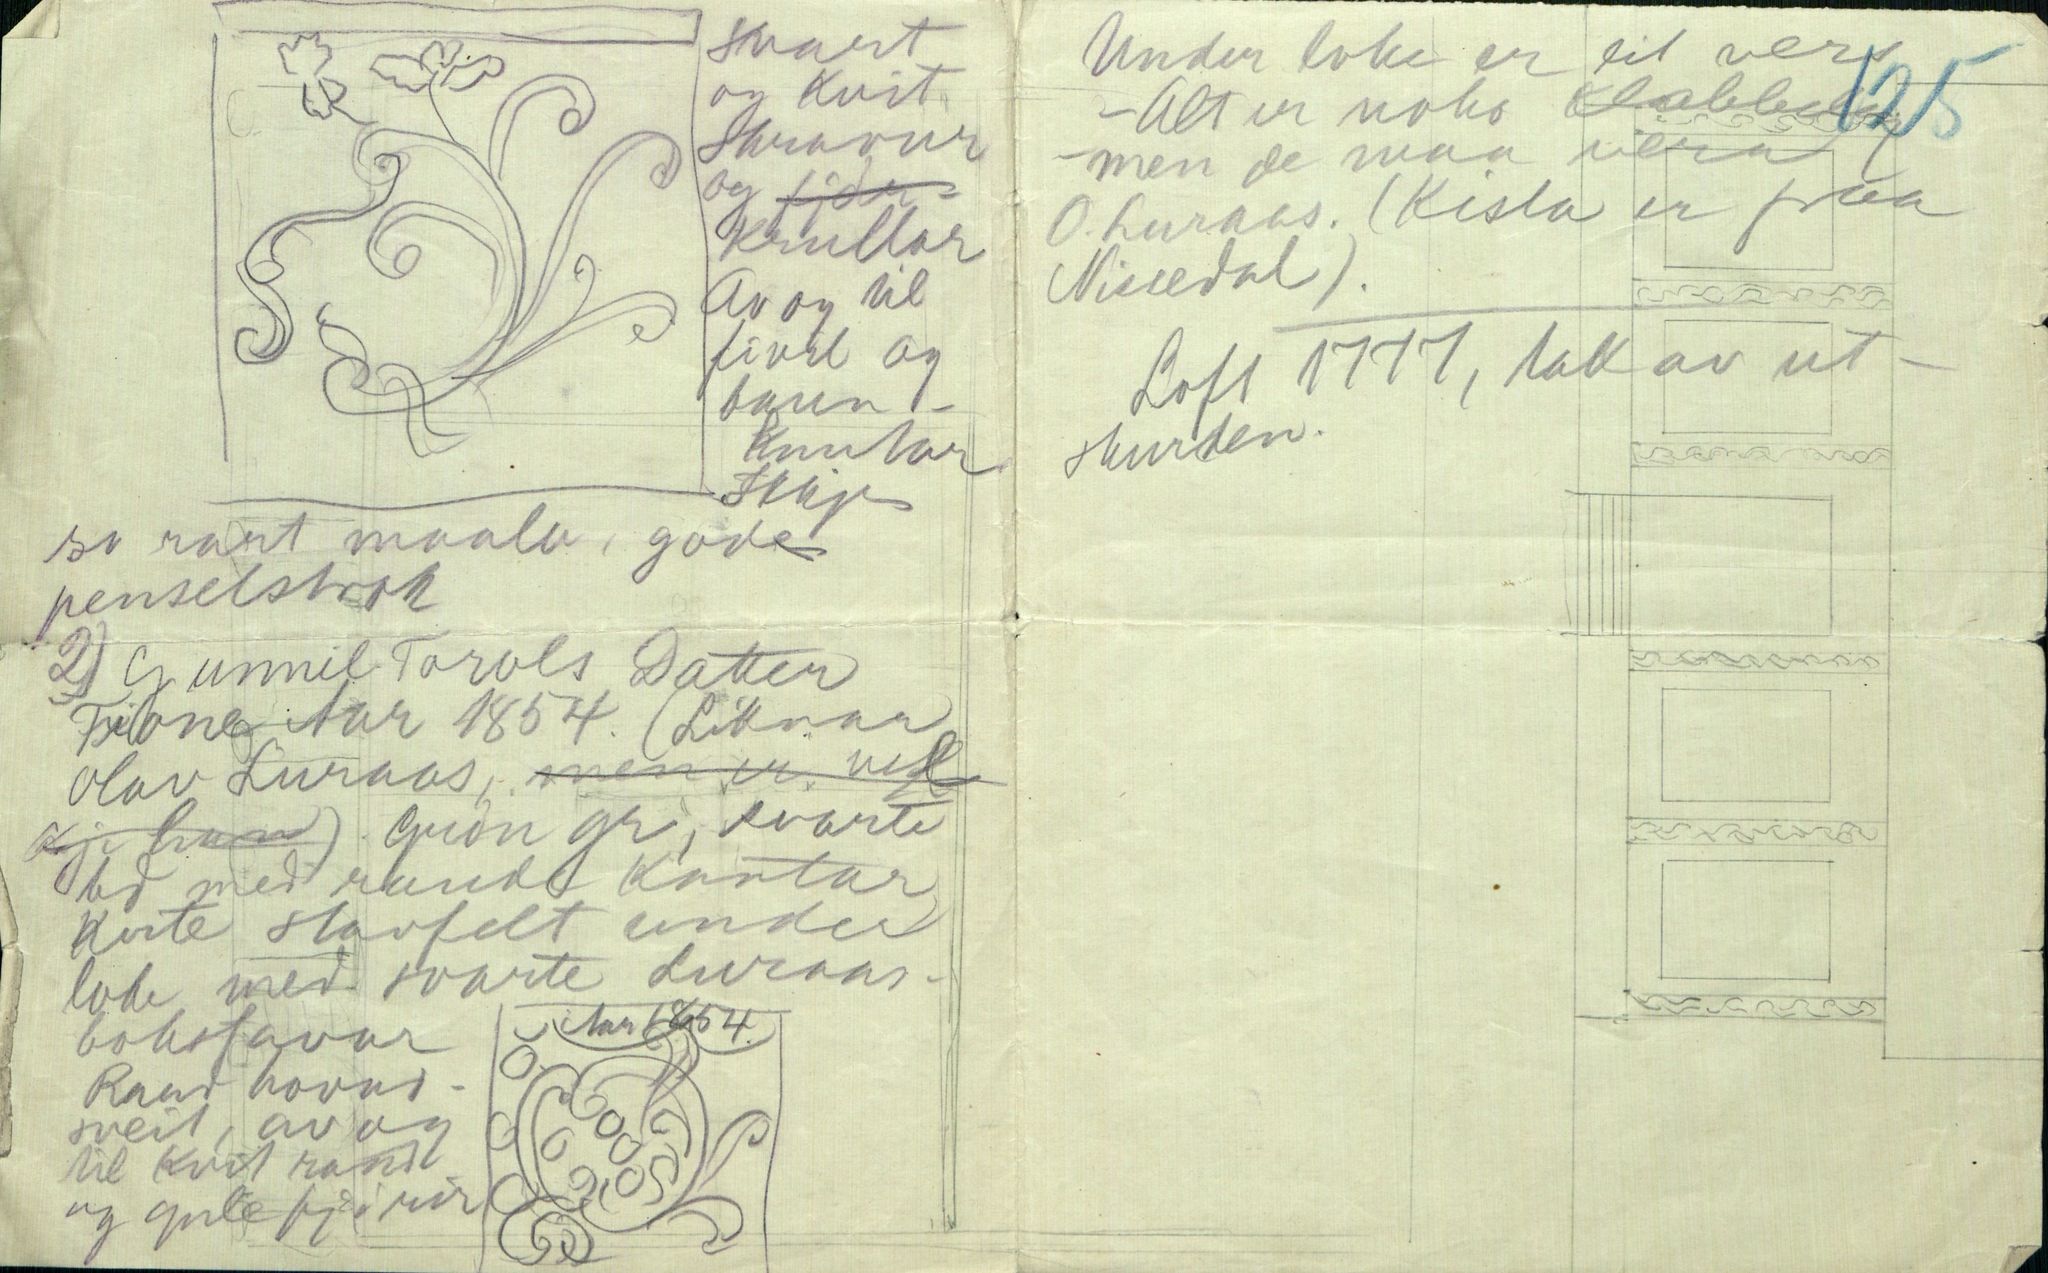 Svart
og Kvit
Skravur
og fjør-
Krullar
Av og til
fivil og
baun-
Knutar
Ikkje
so rart maala, gode
penselstrok
2) Gunnil Torols Datter
Aar 1854. (Liknar
Olav Luraas, men er visst
ikkje han). Grøn gr, svarte
bd med runde Kantar
Kvite skovfelt under
loke med svarte Luraas-
bokstavar
Raud hovud-
sveit, av og
til Kvit rand
og gule fjører
Aar 1854.
Under loke er eit vers
- Alt er noko Klabbete
- men de maa vera
O. Luraas. (Kista er fraa
Nissedal).
Loft 1777, tak av ut-
skurden.
125